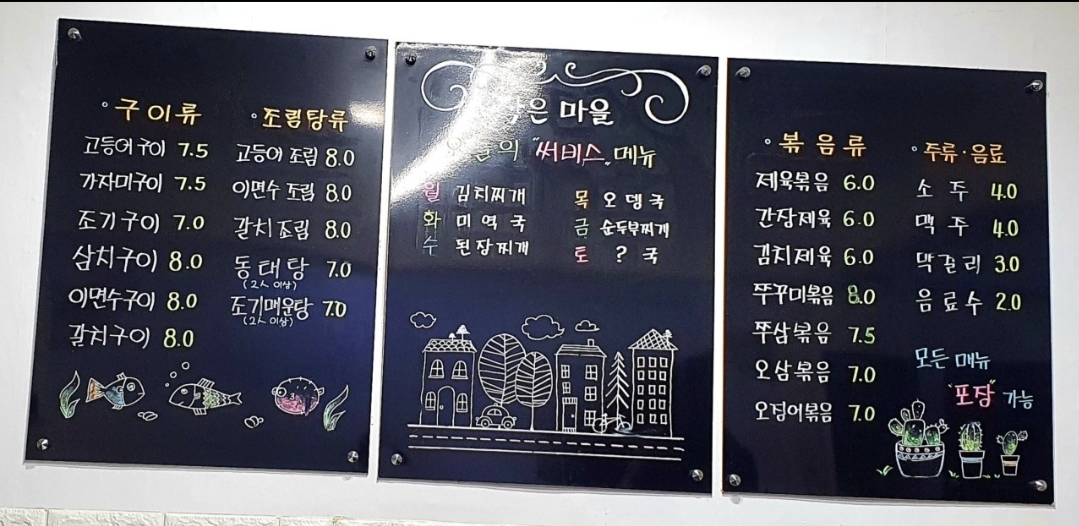 구이류
고등어구이 7.5
가자미구이 7.5
조기구이 7.0
삼치구이 8.0
이면수구이 8.0
갈치구이 8.0
조림탕류
고등어 조림 8.0
이면수 조림 8.0
갈치 조림 8.0
동태탕 7.0
(2人 이상)
조기매운탕 7.0
(2人 이상)
은 마을
오늘의 "써비스" 메뉴
월 김치찌개
화 미역국
수 된장찌개
목 오뎅국
금 순두부찌개
토 ? 국
볶음류
제육볶음 6.0
간장제육 6.0
김치제육 6.0
쭈꾸미볶음 8.0
쭈삼볶음 7.5
오삼볶음 7.0
오징어볶음 7.0
주류·음료
소주 4.0
맥주 4.0
막걸리 3.0
음료수 2.0
모든 메뉴
"포장" 가능